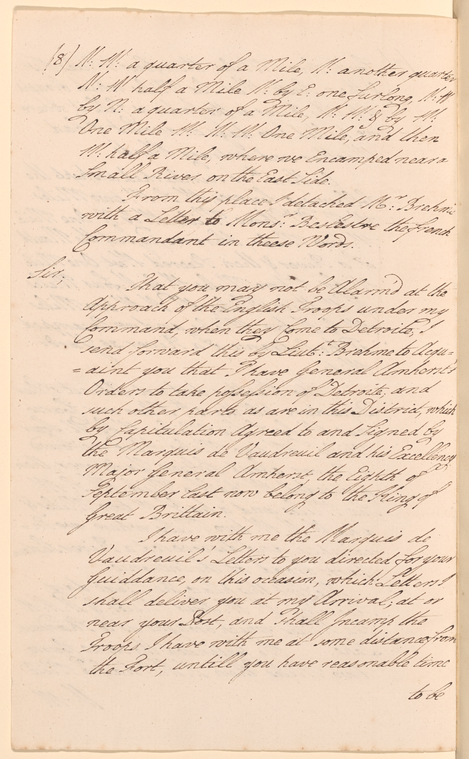 (8) N: W: a quarter of a Mile, N: another quarter
N: W half a Mile N: by E: one furlong, N: W
by N: a quarter of a Mile, N: W: & by W:
One Mile W. N. W. One Mile, and then
W: half a Mile, where we Encamped near a
Small River on the East Side.
From this place I detached Mr: Brehme
with a Letter to Monsr: Beslestre the french
Commandant in these Words.
Sir,
That you may not be Alarm'd at the
Approach of the English Troops under my
Command, when they come to Detroite, I
send forward this by Lieut: Brehme to Acqu=
=aint you that I have General Amherst's
Orders to take possession of Detroite, and
such other parts as are in this District, which
by Capitulation Agreed to and Signed by
the Marquis de Vaudreuil and his Excellency
Major General Amherst, the Eighth of
September last now belong to the King of
Great Brittain.
I have with me the Marquis de
Vaudreuil's Letters to you directed for your
Guiddance, on this occasion, which Letters I
shall deliver you at my Arrival, at or
near your Post, and shall Encamp the
Troops I have with me at some distance from
the Fort, untill you have reasonable time
to be